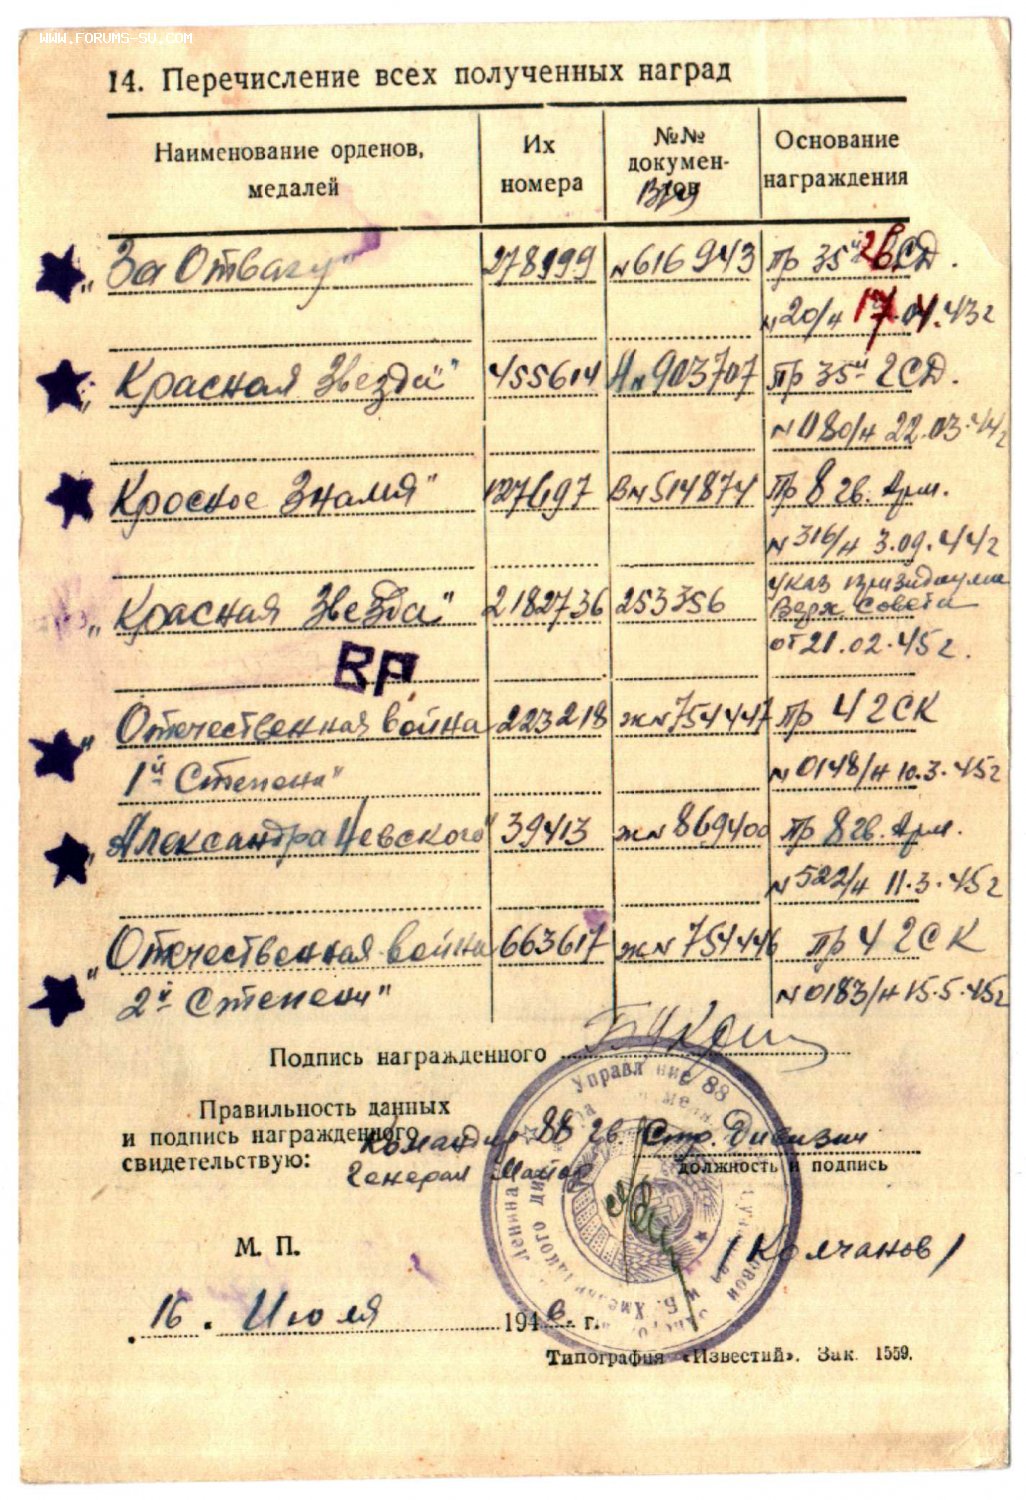 WWW.FORUMS-SU.COM
14. Перечисление всех полученных наград
Наименование орденов, медалей
Их номера
№№ докумен-тов
Основание награждения
„За Отвагу" 278999 №616943 Пр 35й гв СД.
№20/н 17.04.43г
„Красная Звезда" 455614 А№903707 Пр 35й гСД.
№080/н 22.03.44г
Кросное Знамя" 127697 В№514874 Пр 8 гв. Арм.
№316/н 3.09.44г
„Красная Звезда" 2182736 253356 Указ призидиума
Верх. Совета
от 21.02.45г.
ВР
„Отечественная война 223218 Ж№754447 Пр 4 гСК
1й Степени" №0148/н 10.3.45г
„Александра Невского" 39413 Ж№869400 Пр 8 гв. Арм.
№522/н 11.3.45г
„Отечественная война 663617 Ж№754446 Пр 4 гСК
2й Степени" №0183/н 15.5.45г
Подпись награжденного
Правильность данных
и подпись награжденного
свидетельствую:
Командир 88 гв. Стр. Дивизии
Генерал Майор
должность и подпись
/Колчанов/
М. П.
16. Июля 1946. г.
Управление 88
Ленина
Б. Хмель
Типография «Известий». Зак. 1559.